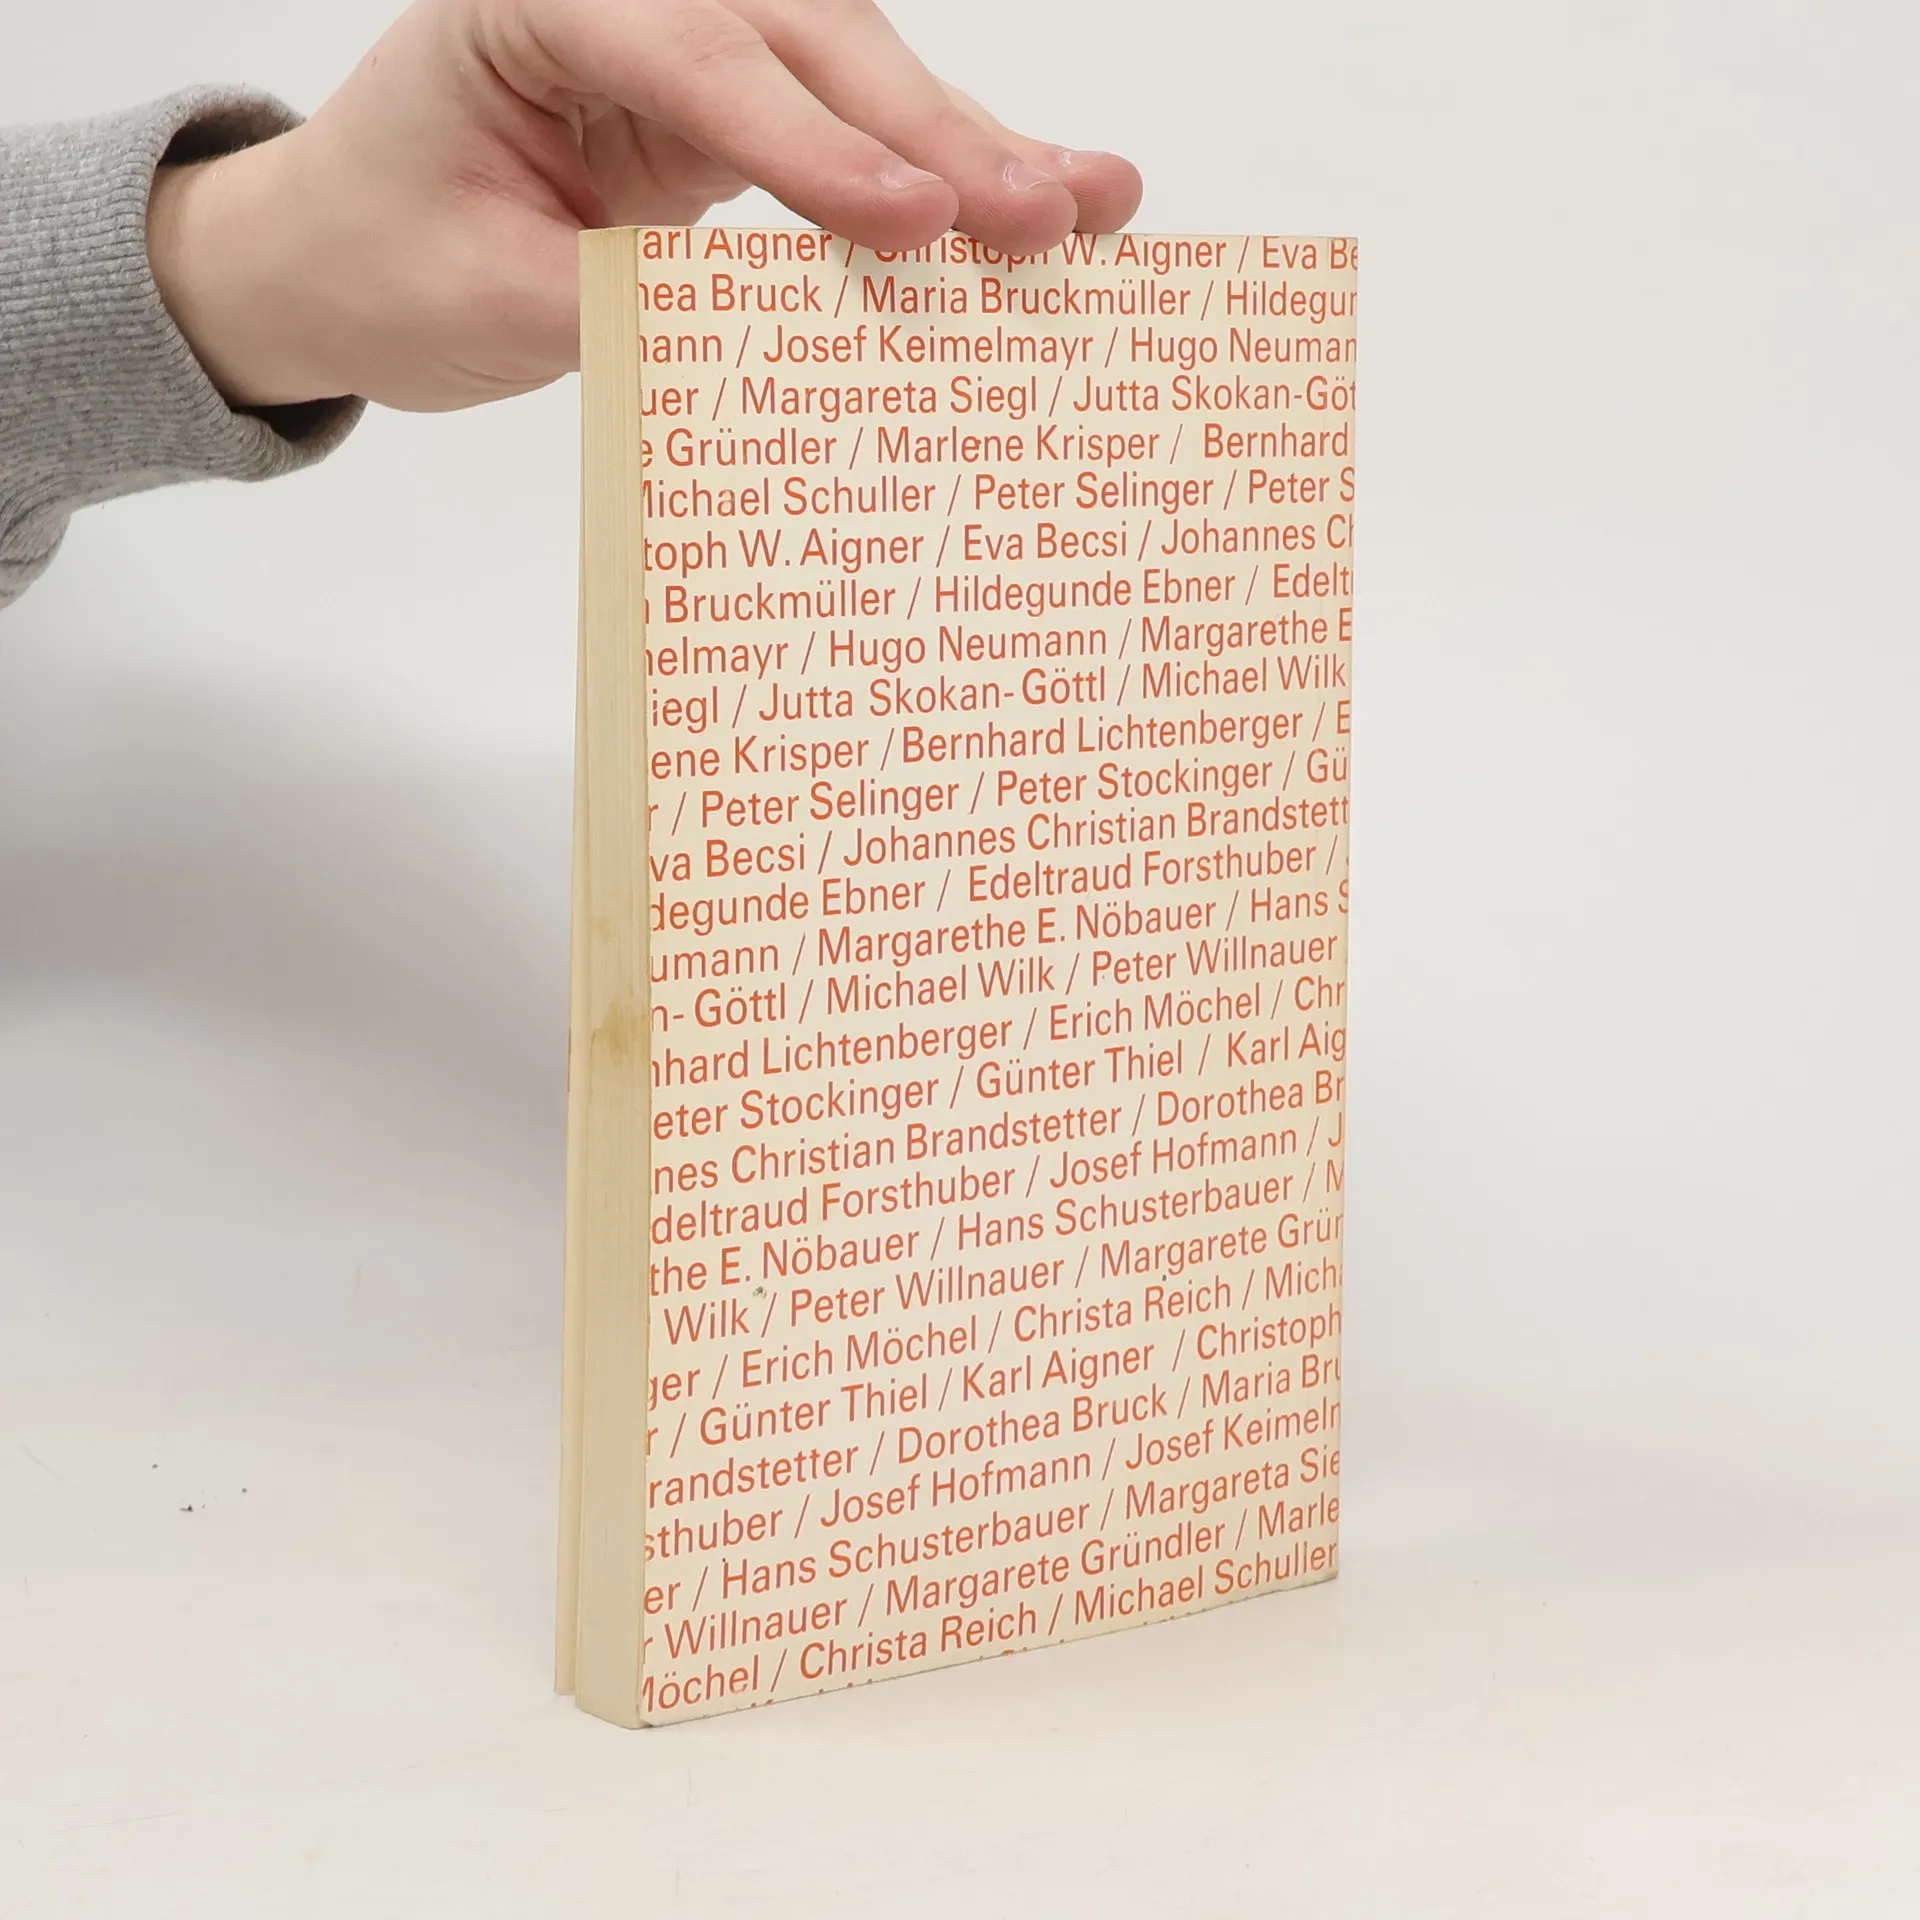 arl Aigner / Christoph W. Aigner / Eva Be
nea Bruck / Maria Bruckmüller / Hildegun
nann / Josef Keimelmayr / Hugo Neuman
uer / Margareta Siegl / Jutta Skokan-Göt
e Gründler / Marlene Krisper / Bernhard
Michael Schuller / Peter Selinger / Peter S
toph W. Aigner / Eva Becsi / Johannes Ch
Bruckmüller / Hildegunde Ebner / Edelt
nelmayr / Hugo Neumann / Margarethe E
iegl / Jutta Skokan-Göttl / Michael Wilk
ene Krisper / Bernhard Lichtenberger / E
r / Peter Selinger / Peter Stockinger / Gü
va Becsi / Johannes Christian Brandstett
degunde Ebner / Edeltraud Forsthuber /
umann / Margarethe E. Nöbauer / Hans S
n-Göttl / Michael Wilk / Peter Willnauer
nhard Lichtenberger / Erich Möchel / Chr
eter Stockinger / Günter Thiel / Karl Aig
nes Christian Brandstetter / Dorothea Br
deltraud Forsthuber / Josef Hofmann / J
the E. Nöbauer / Hans Schusterbauer / M
Wilk / Peter Willnauer / Margarete Grün
ger / Erich Möchel / Christa Reich / Micha
r / Günter Thiel / Karl Aigner / Christoph
randstetter / Dorothea Bruck / Maria Bru
sthuber / Josef Hofmann / Josef Keimeln
er / Hans Schusterbauer / Margareta Sie
r Willnauer / Margarete Gründler / Marle
Möchel / Christa Reich / Michael Schuller